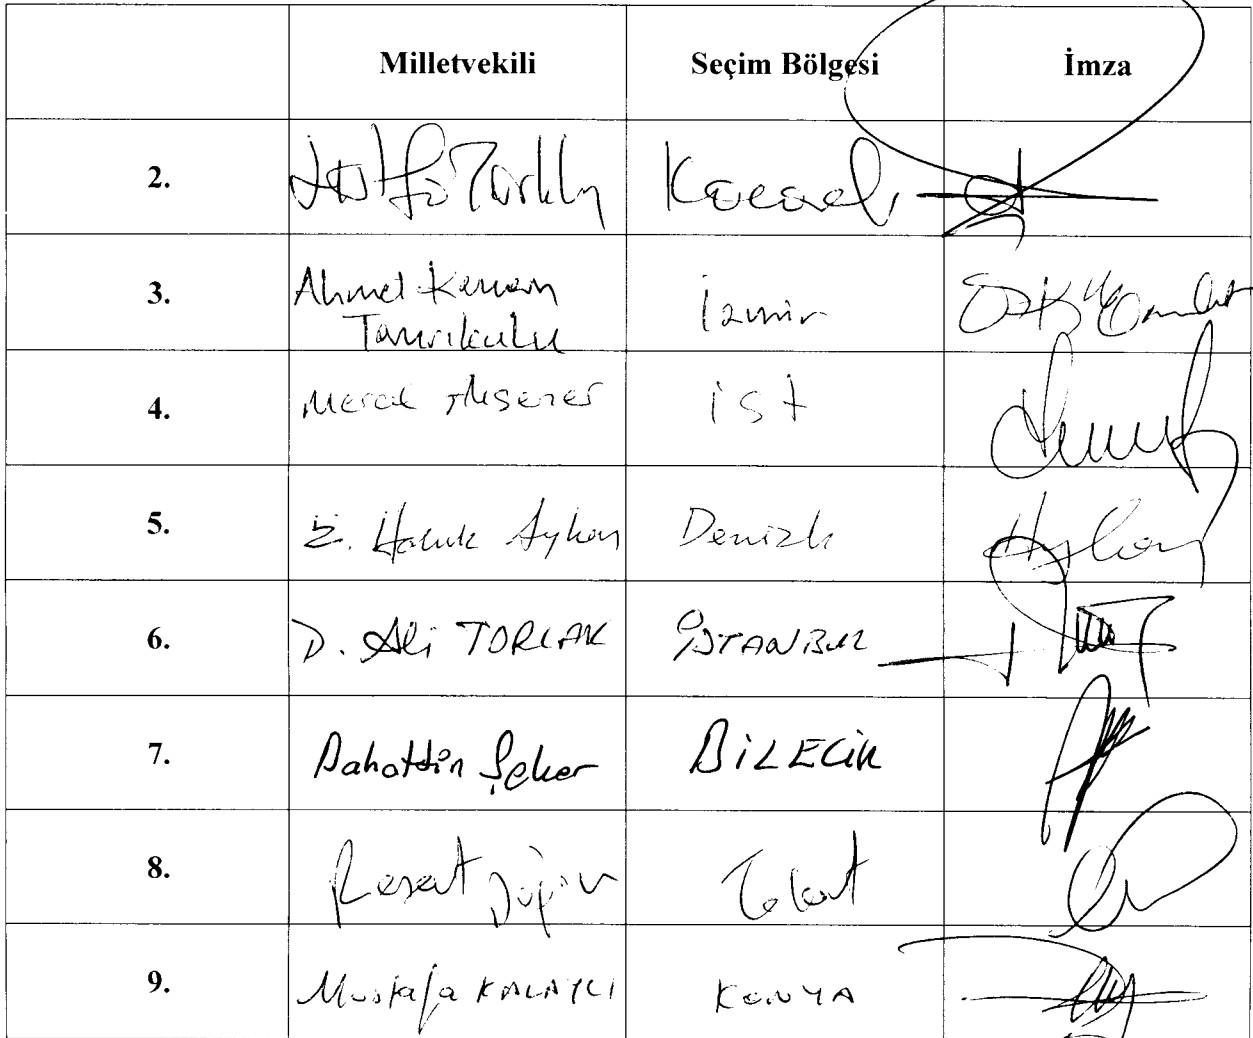 Milletvekili Seçim Bölgesi İmza
2. Lütfü Türkkan Kocaeli
3. Ahmet Kenan Tanrıkulu İzmir
4. Meral Akşener İst
5. E. Haluk Ayhan Denizli
6. D. Ali TORLAK İSTANBUL
7. Bahattin Şeker BİLECİK
8. Reşat Doğru Tokat
9. Mustafa KALAYCI KONYA